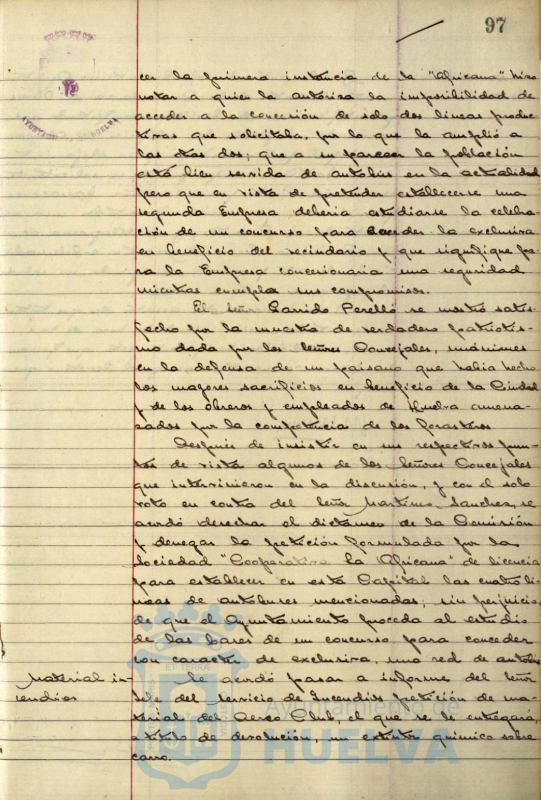 97
cer la primera instancia de la "Africana" hizo
notar a quien la autoriza la imposibilidad de
acceder a la concesión de solo dos lineas produc-
tivas que solicitaba, por lo que la amplió a
las otras dos; que a su parecer la población
está bien servida de autobús en la actualidad
pero que en vista de pretender establecerse una
segunda Empresa deberia estudiarse la celebra-
ción de un concurso para acceder la exclusiva
en beneficio del vecindario y que signifique pa-
ra la Empresa concesionaria una seguridad
mientras cumpla sus compromisos.
El Señor Garrido Perelló se mostró satis-
fecho por la muestra de verdadero patriotis-
mo dada por los Señores Concejales, unánimes
en la defensa de un paisano que habia hecho
los mayores sacrificios en beneficio de la Ciudad
y de los obreros y empleados de Huelva amena-
zados por la competencia de los forasteros
Después de insistir en sus respectivos pun-
tos de vista algunos de los Señores Concejales
que intervinieron en la discusión, y con el solo
voto en contra del Señor Martinez Sanchez, se
acordó desechar el dictamen de la Comisión
y denegar la petición formulada por la
Sociedad "Cooperativa la Africana" de licencia
para establecer en esta Capital las cuatro li-
neas de autobuses mencionadas; sin perjuicio,
de que el Ayuntamiento proceda al estudio
de las bases de un concurso para conceder
con caracter de exclusiva, una red de autobús
Material in-
cendios
Se acordó pasar a informe del Señor
Jefe del Servicio de Incendios petición de ma-
terial del Aereo Club, el que se le entregará,
a titulo de devolución, un extintor quimico sobre
carro.
AYUNTAMIENTO HUELVA
Ayuntamiento de
HUELVA